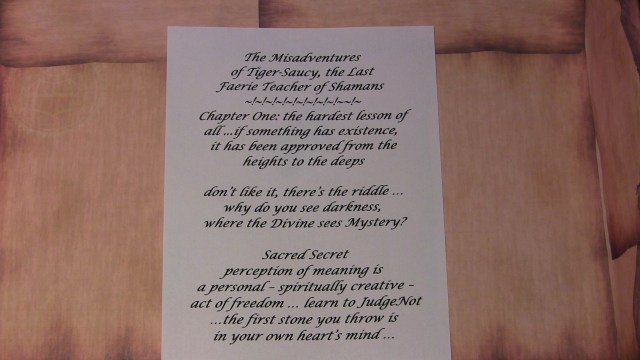 The Misadventures
of Tiger-Saucy, the Last
Faerie Teacher of Shamans
~!~!~!~!~!~!~!~!~!~~!~
Chapter One: the hardest lesson of
all ...if something has existence,
it has been approved from the
heights to the deeps
don't like it, there's the riddle ...
why do you see darkness,
where the Divine sees Mystery?
Sacred Secret
perception of meaning is
a personal – spiritually creative –
act of freedom ... learn to JudgeNot
...the first stone you throw is
in your own heart's mind ...